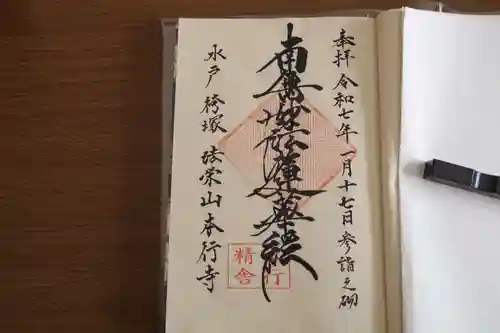 奉拝 令和七年一月十七日 参詣之砌
南無妙法蓮華経
水戸 袴塚 法栄山 本行寺
精舎
行